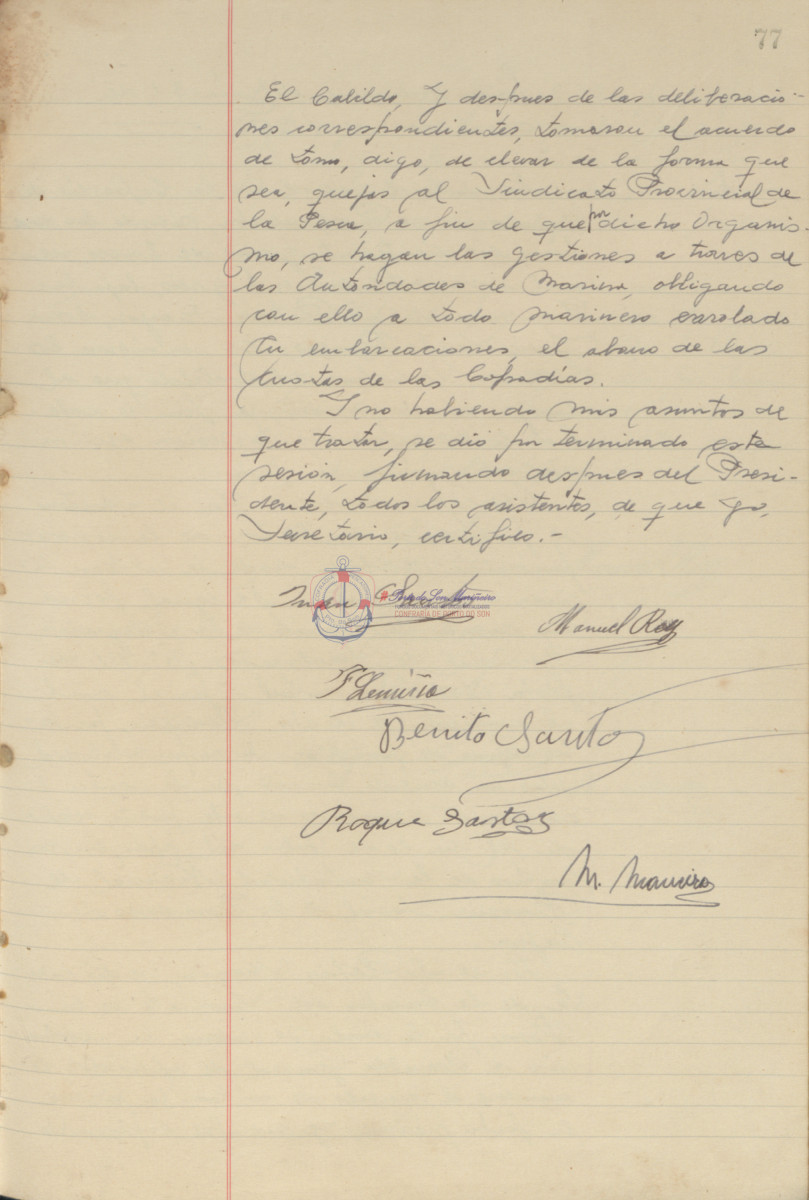 77
El Cabildo, y despues de las deliberacio-
nes correspondientes, tomaron el acuerdo
de tomo, digo, de elevar de la forma que
sea, quejas al Sindicato Provincial de
la Pesca, a fin de que por dicho Organis-
mo, se hagan las gestiones a traves de
las Autoridades de Marina, obligando
con ello a todo marinero enrolado
en embarcaciones, el abono de las
cuotas de las Cofradías.
Y no habiendo mas asuntos de
que tratar, se dió por terminado este
sesión, firmando despues del Presi-
dente, todos los asistentes, de que yo,
Secretario, certifico.-
Juan
Porto do Son Mariñeiro
CONFRARÍA DE PORTO DO SON
Manuel Roo
F Lemiña
Benito Santos
Roque Santos
M. Maneiro